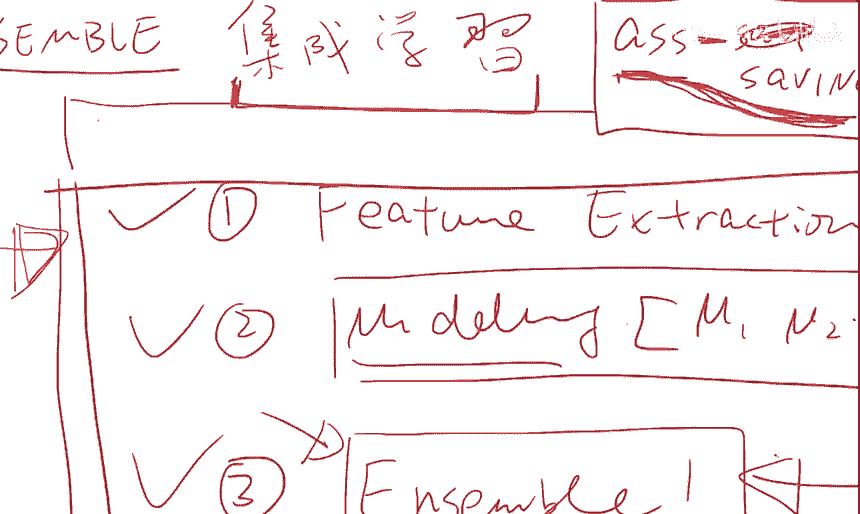 SEMBLE 集成学習 ass-
SAVIN
✓ ① Feature Extraction
✓ ② Modeling [M₁ M₂.
✓ ③ Ensemble !